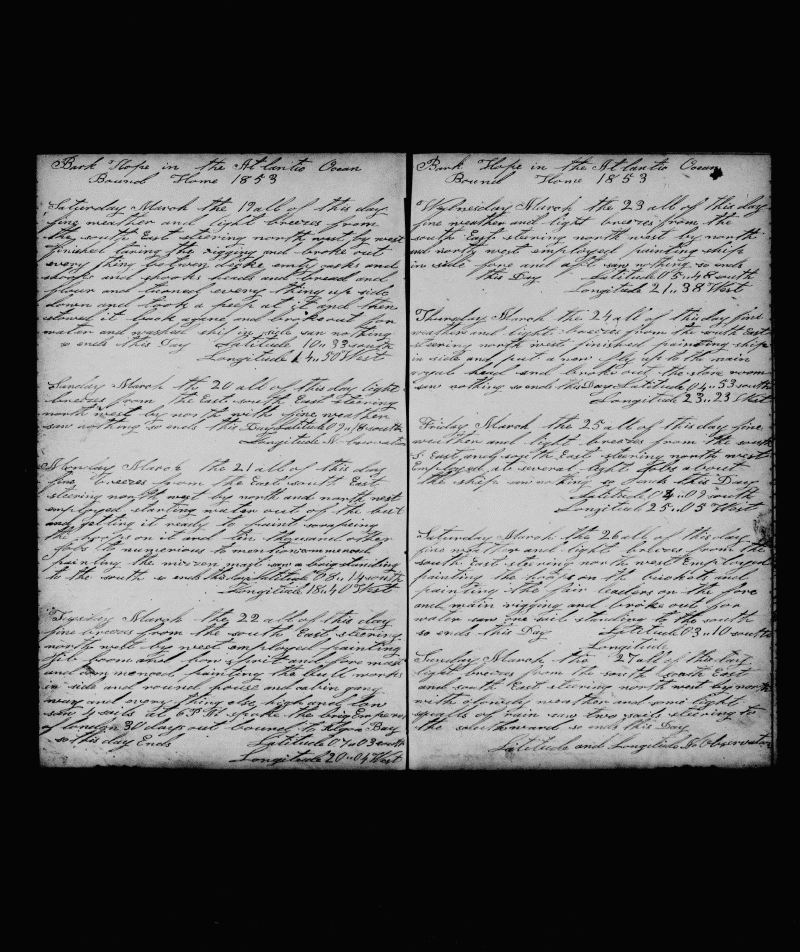 Bark Hope in the Atlantic Ocean
Bound Home 1853
Saturday March the 19 all of this day
fine weather and light breezes from
the south East steering north west by west
finished taring the rigging and broke out
every thing between decks emty casks and
shooks and spooks heads and bread and
flour and turned every thing up side
down and took a peep at it and then
stowed it back agane and broke out for
water and washed ship in side saw nothing
so ends this Day Latitude 10"33 south
Longitude 14"50 West
Sunday March the 20 all of this day light
breezes from the East south East steering
north west by north with fine weather
saw nothing so ends this Day Latitude 09"18 south
Longitude No observation
Monday March the 21 all of this day
fine breezes from the East south East
steering north west by north and north west
employed starting water out of the
and getting it ready to paint scraping
the on it and ten thousand other
jobs to numerious to mention commenced
painting the mizzen mast saw a standing
to the south so ends this day Latitude 08"14 south
Longitude 18"40 West
Tuesday March the 22 all of this day
fine breezes from the south East steering
north west by west employed painting
jib boom and bow sprit and fore mast
and commenced painting the bull works
in side and round house and cabin gang
way and every thing else high and low
saw 4 sails at 6 P M spoke the brig
of London 30 days out bound to Algoa Bay
so this day Ends Latitude 07"03 south
Longitude 20"04 West
Bark Hope in the Atlantic Ocean
Bound Home 1853
Wednesday March the 23 all of this day
fine weather and light breezes from the
south East steering north west by north
and north west employed painting ship
in side fore and aft saw nothing so ends
this Day Latitude 05"48 south
Longitude 21"38 West
Thursday March the 24 all of this day fine
weather and light breezes from the south East
steering north west finished painting ship
in side and put a new up to the main
royal head and broke out the store room
saw nothing so ends this Day Latitude 04"53 south
Longitude 23"23 West
Friday March the 25 all of this day fine
weather and light breezes from the south
S. East and south East steering north west
Employed at several light jobs about
the ship saw nothing so Ends this Day
Latitude 04"03 south
Longitude 25"05 West
Saturday March the 26 all of this day
fine weather and light breezes from the
south East steering north west Employed
painting the hoops on the buckets and
painting the fair leaders on the fore
and main rigging and broke out for
water saw one sail standing to the south
so ends this Day Latitude 03"10 south
Longitude
Sunday March the 27 all of this day
light breezes from the south south East
and south East steering north west by north
with cloudy weather and some light
squalls of rain saw two sail steering to
the southward so ends this Day
Latitude and Longitude No Observation